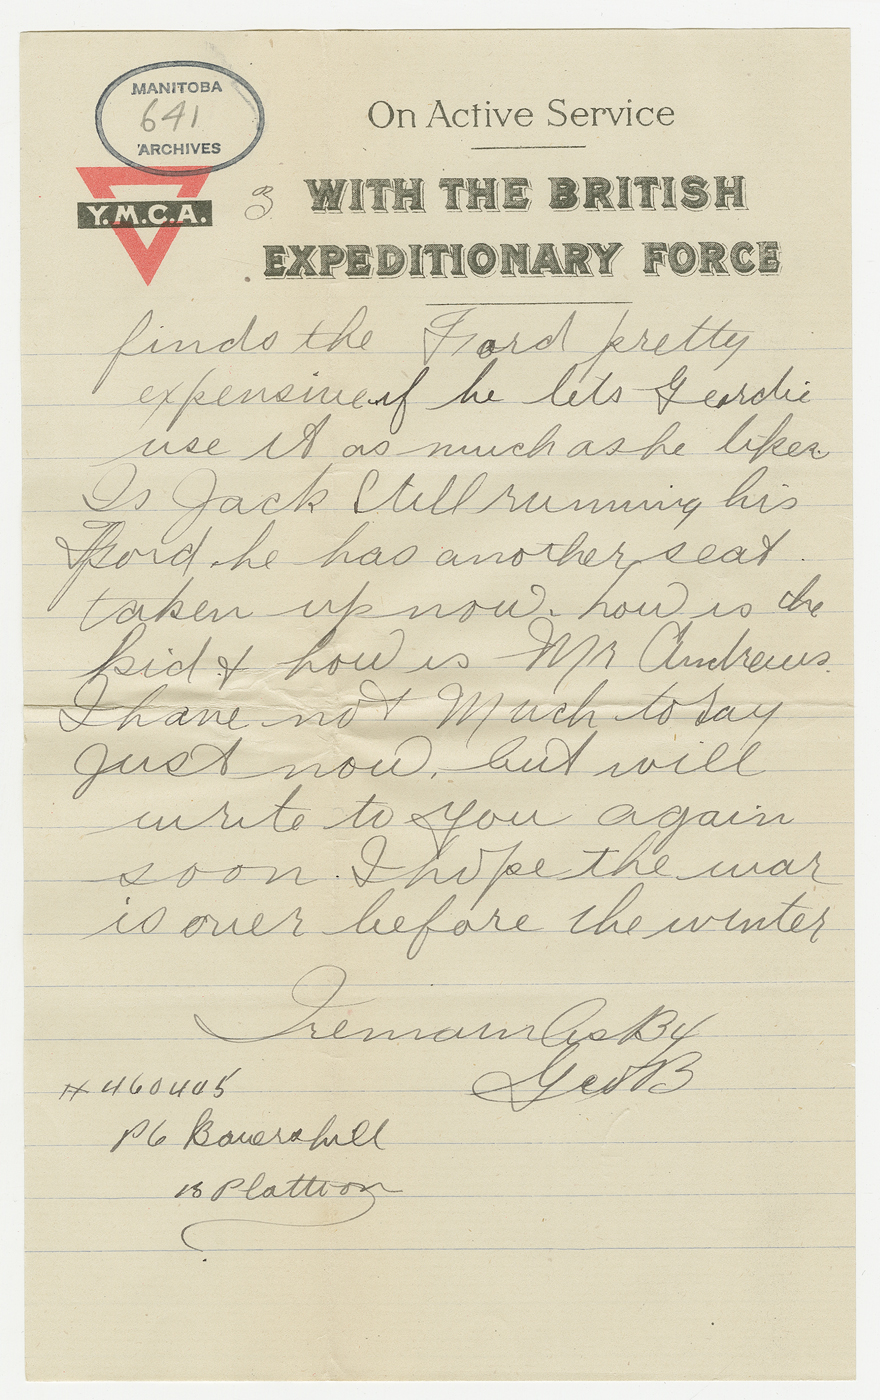 MANITOBA
641
ARCHIVES
Y.M.C.A.
On Active Service
3
WITH THE BRITISH
EXPEDITIONARY FORCE
finds the Ford pretty
expensive if he lets Geordie
use it as much as he likes
Is Jack Still running his
Ford he has another seat
taken up now. how is the
kid & how is Mr Andrews.
I have not Much to Say
Just now, but will
write to you again
soon. I hope the war
is over before the winter
I remain As By
Geo B
# 460405
Pt Bowershill
13 Plattion